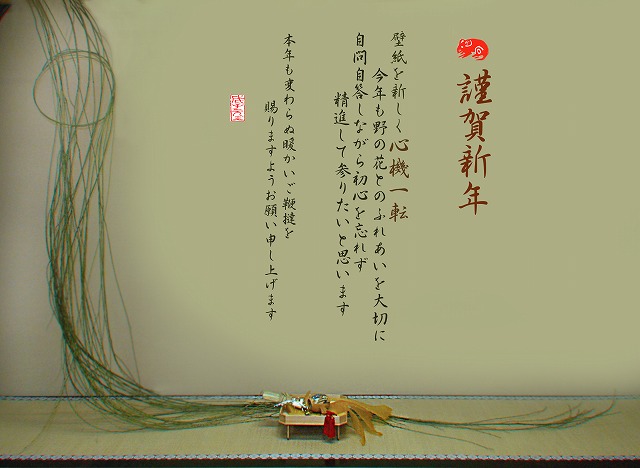 謹賀新年
壁紙を新しく心機一転
今年も野の花とのふれあいを大切に
自問自答しながら初心を忘れず
精進して参りたいと思います
本年も変わらぬ暖かいご鞭撻を
賜りますようお願い申し上げます